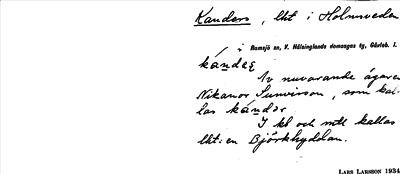 Kanders, lht i Holmsveden
i Ramsjö sn, V. Hälsinglands domsagas tg, Gävleb. l.
kándeṣ
Av nuvarande ägaren
Nikanor Sunvisson, som kal-
las kándor
I kb och mtl kallas
lht:en Björkhyddan.
LARS LARSSON 1934